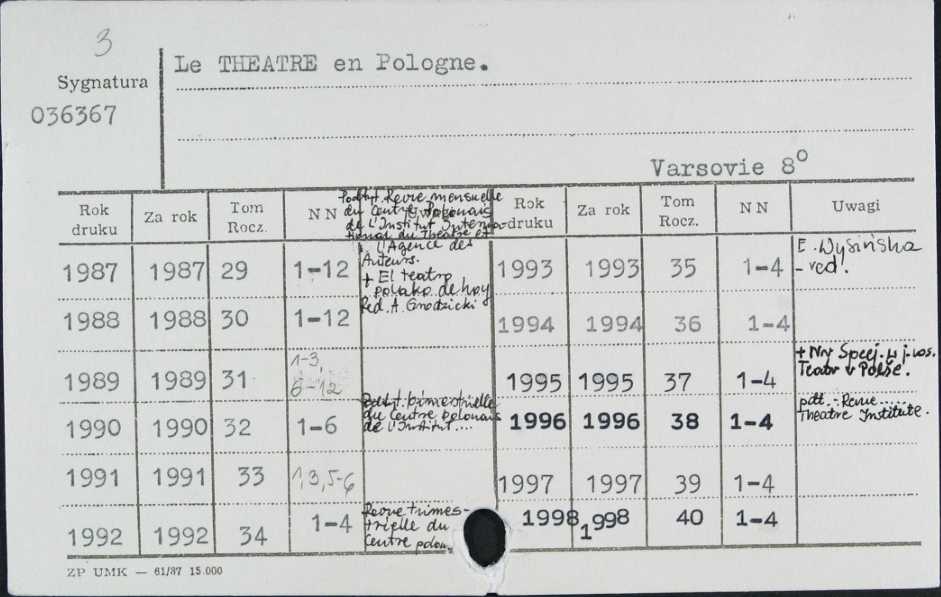 3
Le THEATRE en Pologne.
Sygnatura
036367
Varsovie 8°
Rok druku Za rok Tom Rocz. N N Uwagi Rok druku Za rok Tom Rocz. N N Uwagi
Podtyt. Revue mensuelle
du Centre Polonais
de l'Institut Interna-
tional du Théâtre et
l'Agence des
Auteurs.
+ El teatro
polako de hoy
Red. A. Grodzicki
1987 1987 29 1-12
1988 1988 30 1-12
1989 1989 31 1-3, 6-12
1990 1990 32 1-6 Podtyt. bimestrielle
du Centre polonais
de l'Institut....
1991 1991 33 1,3,5-6
1992 1992 34 1-4 Revue trimes-
trielle du
Centre polon.
1993 1993 35 1-4 E. Wysińska
- red.
1994 1994 36 1-4
1995 1995 37 1-4 + Nry Specj. w j. ros.
Teatr v Polše.
1996 1996 38 1-4 pdt. - Revue......
Theatre Institute.
1997 1997 39 1-4
1998 1998 40 1-4
ZP UMK — 61/87 15.000